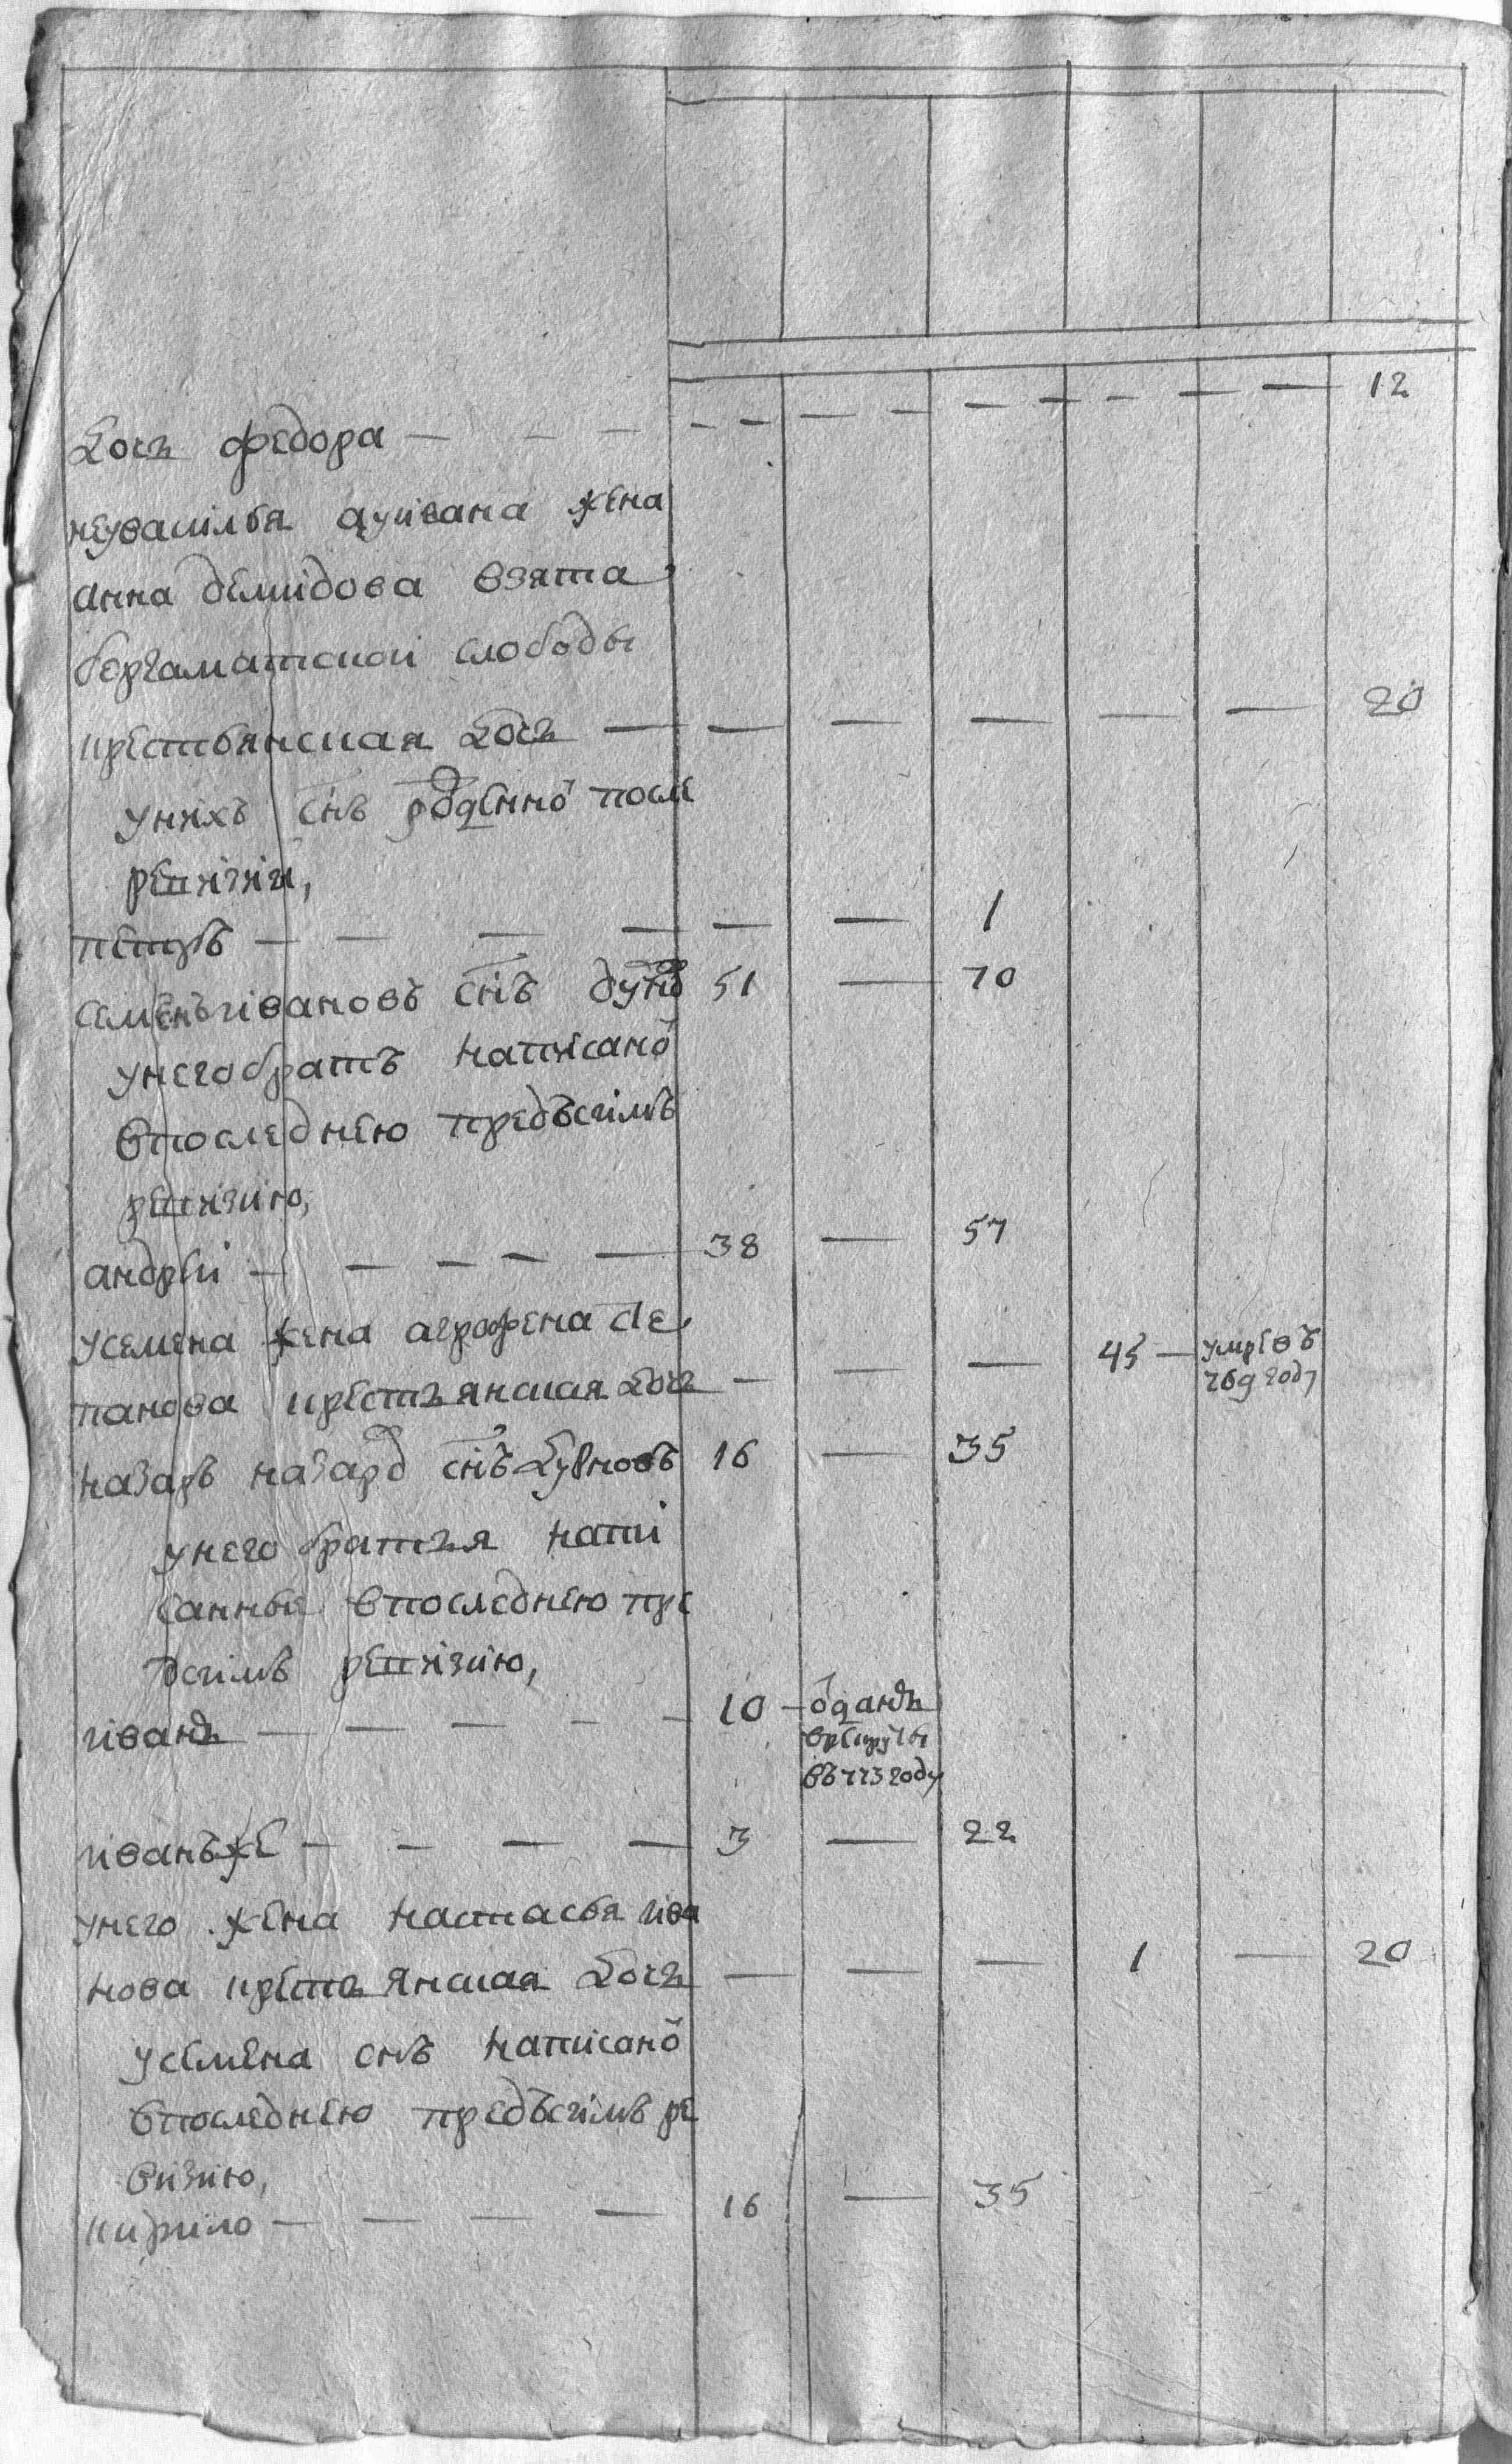 дочь федора — — — — — — — — — — — 12
анна демидова взята
бергаматской слободы
крестьянская дочь — — — — — — 20
у них снъ рожденно после
ревизии,
петръ — — — — — — 1
семенъ ивановъ снъ 51 — 70
у него братъ написано
в последнею предъсимъ
ревизию,
андрей — — — — — 38 — 57
у семена жена аграфена сте
панова крестьянская дочь — — — 45 — умре въ
769 году
назаръ назаро снъ 16 — 35
у него братья напи
санные в последнею пре
дсимъ ревизию,
иванъ — — — — — 10 — оданъ
в рекруты
въ 773 году
иванъ же — — — — 3 — 22
у него жена настасья ива
нова крестьянская дочь — — — 1 — 20
у семена снъ написано
в последнею предъсимъ ре
визию,
кирило — — — — 16 — 35